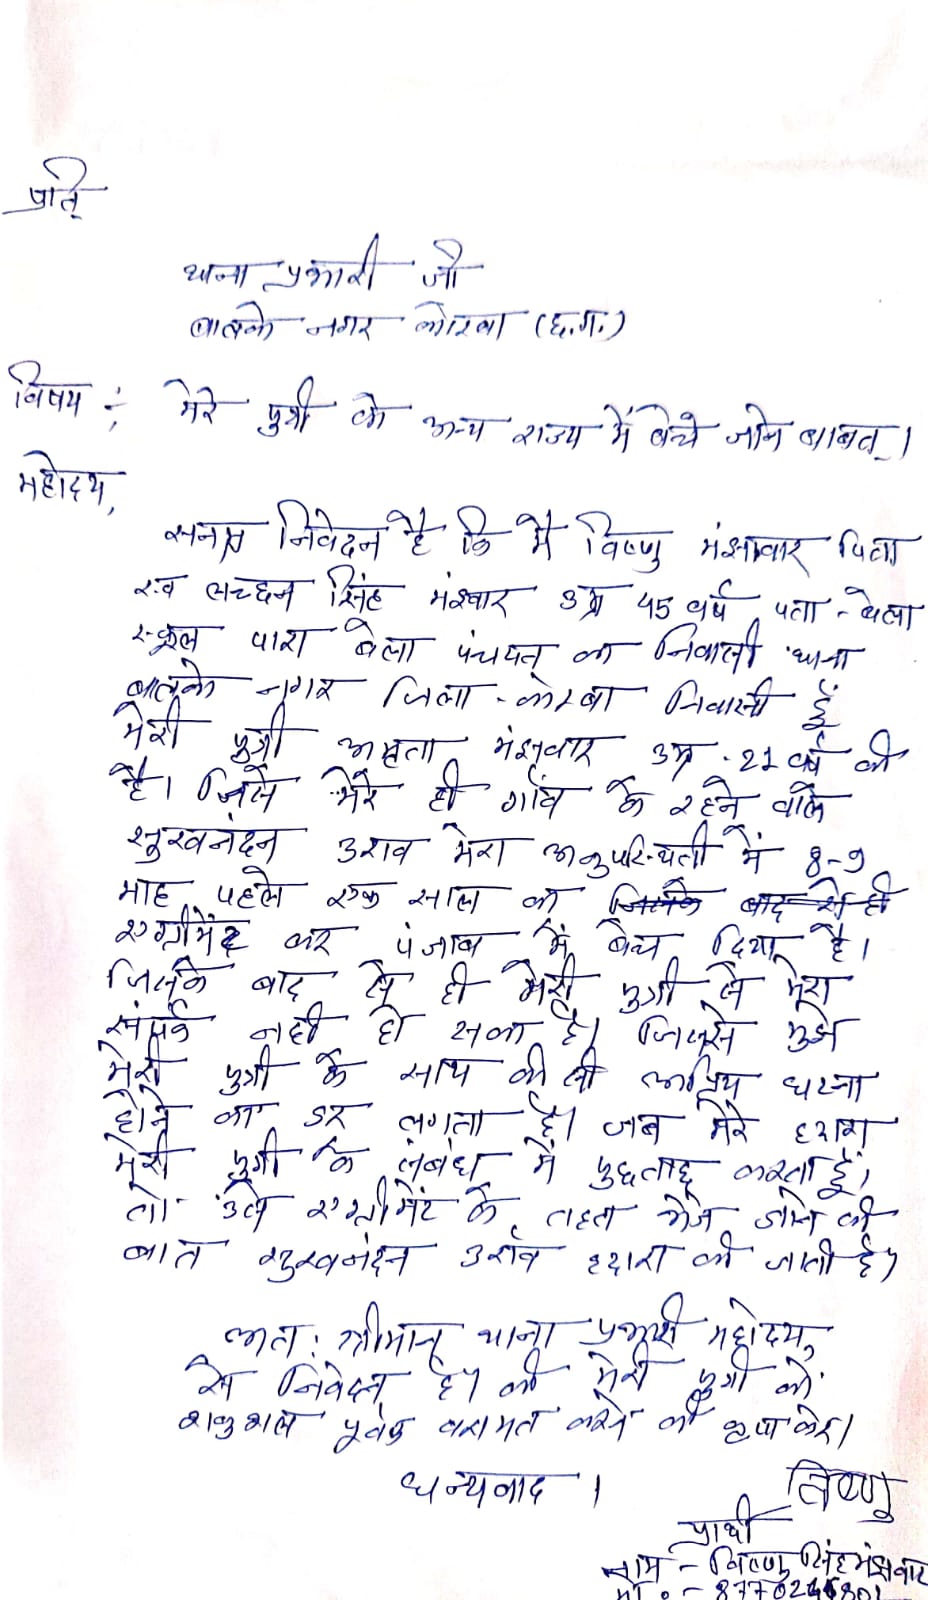 प्रति
थाना प्रभारी जी
बालको नगर कोरबा (छ.ग.)
विषय :- मेरे पुत्री को अन्य राज्य में बेचे जाने बाबत् ।
महोदय,
सनम्र निवेदन है कि मै विष्णु मंझवार पिता
स्व लच्छन सिंह मंझवार उम्र 45 वर्ष पता - बेला
स्कूल पारा बेला पंचायत का निवासी थाना
बालको नगर जिला - कोरबा निवासी हूँ
मेरी पुत्री अमृता मंझवार उम्र - 21 वर्ष की
है। जिसे मेरे ही गाँव के रहने वाले
सुखनंदन उराव मेरा अनुपस्थिती में 8-9
माह पहले एक साल का जिसके बाद से ही
एग्रीमेंट कर पंजाब में बेच दिया है।
जिसके बाद से ही मेरी पुत्री से मेरा
संपर्क नही हो सका है। जिससे मुझे
मेरी पुत्री के साथ कीसी अप्रिय घटना
होने का डर लगता है। जब मेरे द्वारा
मेरी पुत्री के संबंध में पुछताछ करता हूँ।
तो उसे एग्रीमेंट के तहत भेजे जाने की
बात सुखनंदन उराँव द्वारा की जाती है।
अतः श्रीमान् थाना प्रभारी महोदय,
से निवेदन है। की मेरी पुत्री को
शकुशल पूर्वक बरामत करने की कृपा करे।
धन्यवाद ।
विष्णु
प्रार्थी
नाम - विष्णु सिंह मंझवार
मो. : -